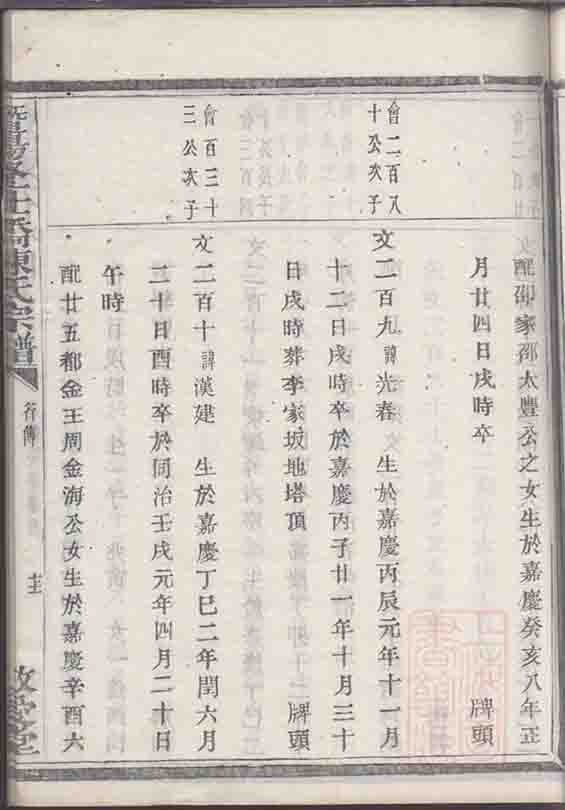 配邵家邵太豐公之女生於嘉慶癸亥八年正
月廿四日戌時卒 牌頭
會二百八
十公次子
文二百九諱光春 生於嘉慶丙辰元年十一月
十二日戌時卒於嘉慶丙子廿一年十月三十
日戌時葬李家坂地塔頂 牌頭
會百三十
三公次子
文二百十諱漢建 生於嘉慶丁巳二年閏六月
二十日酉時卒於同治壬戌元年四月二十日
午時
配廿五都金王周金海公女生於嘉慶辛酉六
暨陽 橋陳氏宗譜
行傳
敬愛堂